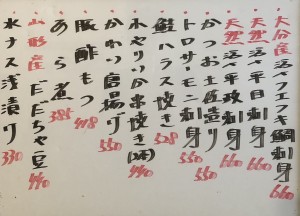 大分産 活〆フエフキ鯛刺身 660
天然 活〆平目刺身 660
天然 活〆平政刺身 660
かつお土佐造り 550
トロサーモン刺身 550
鮭ハラス焼き 528
小やりいか串焼き(2本) 440
かわり唐揚げ 550
豚酢もつ 418
あら煮 385
山形産 だだちゃ豆 440
水ナス浅漬け 330